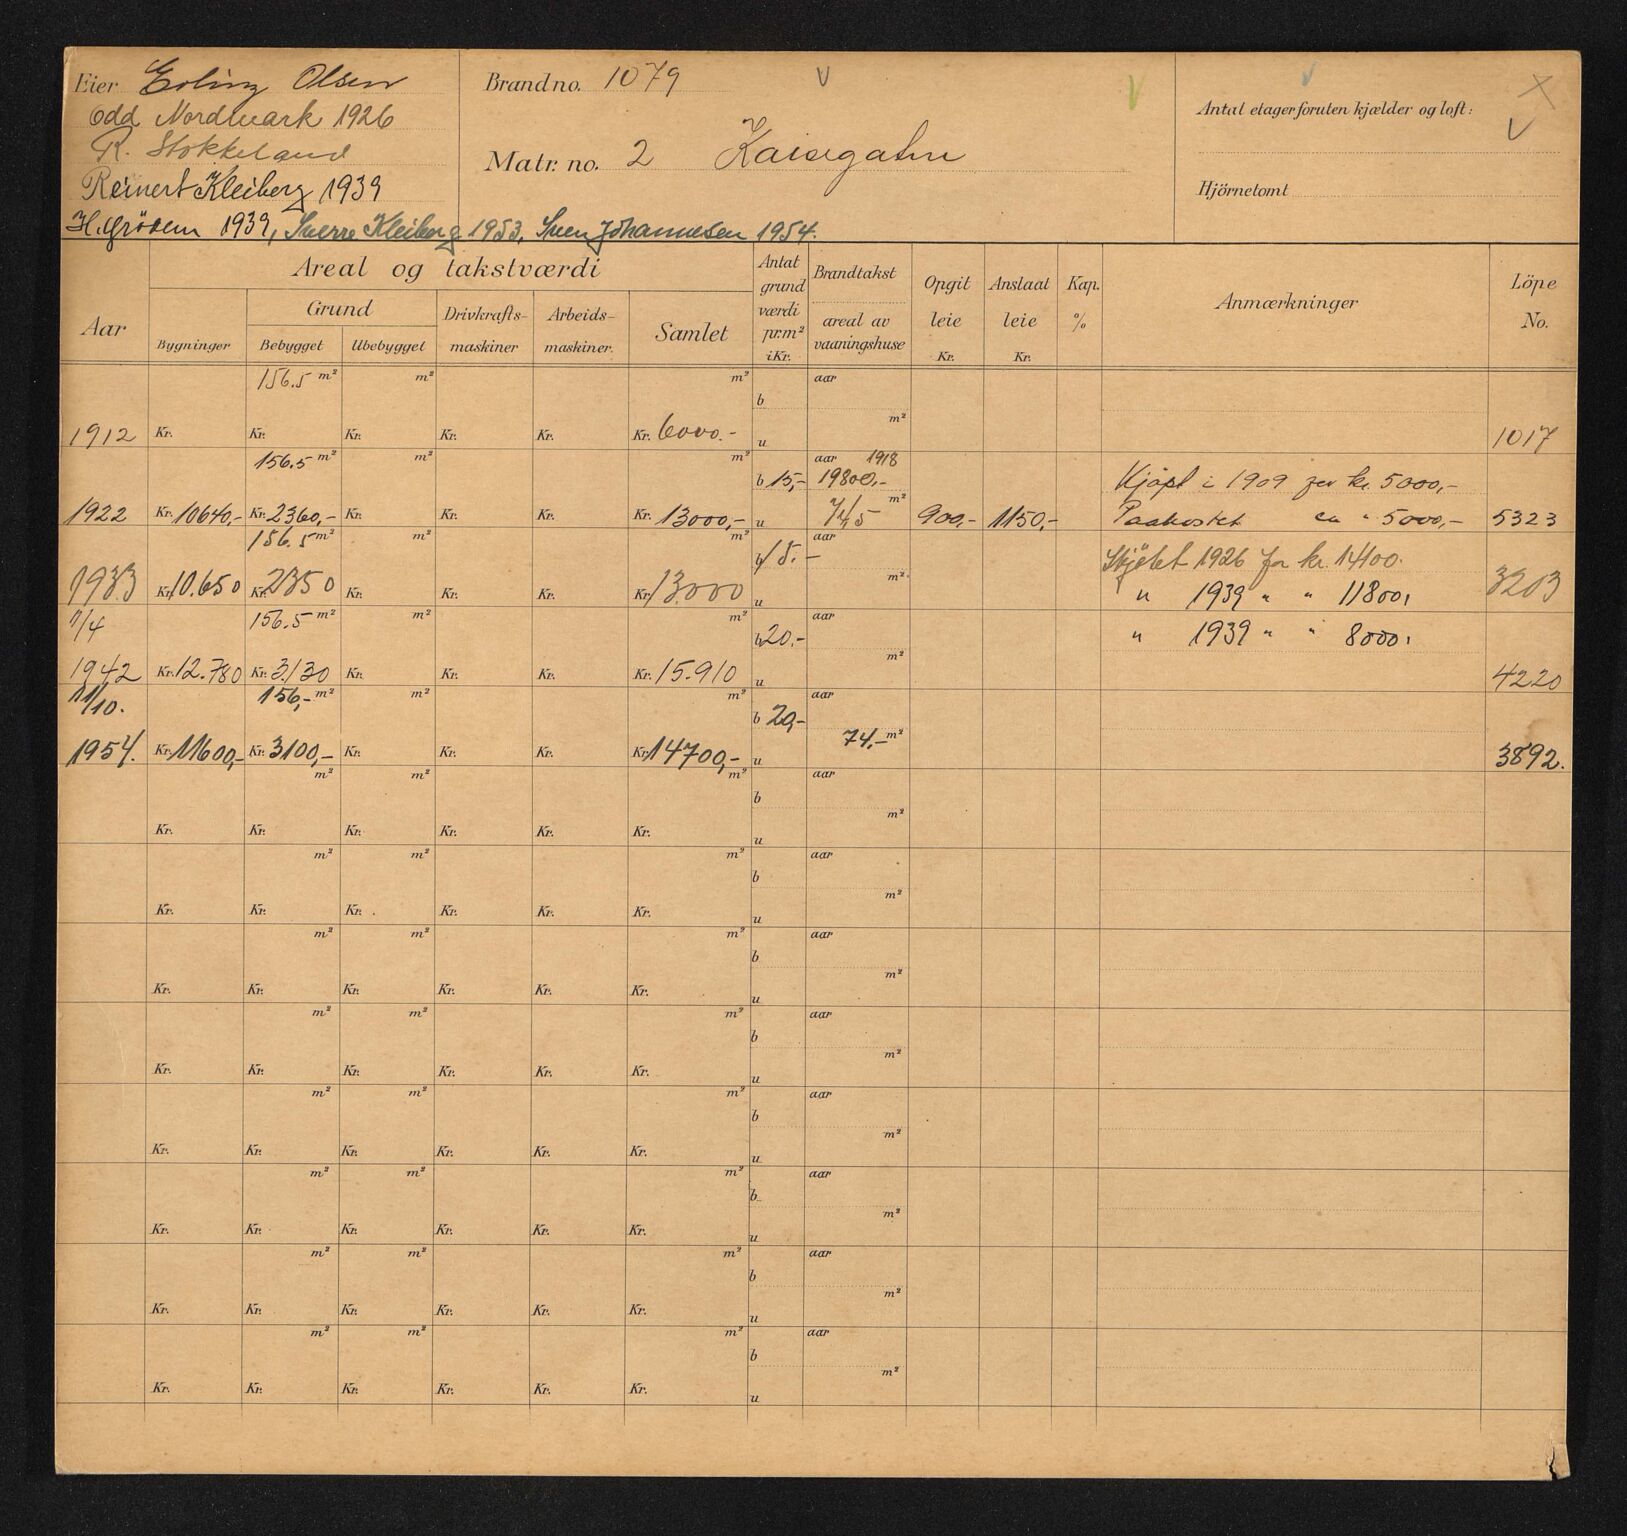 Eier Erling Olsen
Odd Nordmark 1926
R. Stokkeland
Reinert Kleiberg 1939
H. Grödem 1939, Sverre Kleiberg 1953, Sven Johannesen 1954.
Brand no. 1079
Matr. no. 2 Kaisegaten
Antal etager foruten kjælder og loft:
Hjörnetomt
Areal og takstværdi
Aar
Bygninger
Grund
Bebygget
Ubebygget
Drivkrafts-
maskiner
Arbeids-
maskiner.
Samlet
Antat
grund
værdi
pr. m²
i Kr.
Brandtakst
areal av
vaaningshuse
Opgit
leie
Kr.
Anslaat
leie
Kr.
Kap.
%
Anmærkninger
Löpe
No.
156.5 m² m² m² b aar
m²
1912 Kr. Kr. Kr. Kr. Kr. Kr. 6000.- u 1017
156.5 m² m² m² b 15,- aar 1918
19800,- Kjöpt i 1909 for kr. 5000,-
m²
1922 Kr. 10640,- Kr. 2360,- Kr. Kr. Kr. Kr. 13000,- u 900,- 1150,- Paakostet ca " 5000,- 5323
156.5 m² m² m² b 15.- aar Skjötet 1926 for kr. 11400.
m²
1933 Kr. 10.650 Kr. 2350 Kr. Kr. Kr. Kr. 13.000 u " 1939 " " 11800, 3203
11/4 156.5 m² m² m² b 20.- aar " 1939 " " 8000,
m²
1942 Kr. 12.780 Kr. 3.130 Kr. Kr. Kr. Kr. 15.910 u 4220
11/10. 156,- m² m² m² b 20,- aar
74,- m²
1954. Kr. 11600,- Kr. 3100,- Kr. Kr. Kr. Kr. 14700,- u 3892.
m² m² m² b aar
m²
Kr. Kr. Kr. Kr. Kr. Kr. u
m² m² m² b aar
m²
Kr. Kr. Kr. Kr. Kr. Kr. u
m² m² m² b aar
m²
Kr. Kr. Kr. Kr. Kr. Kr. u
m² m² m² b aar
m²
Kr. Kr. Kr. Kr. Kr. Kr. u
m² m² m² b aar
m²
Kr. Kr. Kr. Kr. Kr. Kr. u
m² m² m² b aar
m²
Kr. Kr. Kr. Kr. Kr. Kr. u
m² m² m² b aar
m²
Kr. Kr. Kr. Kr. Kr. Kr. u
m² m² m² b aar
m²
Kr. Kr. Kr. Kr. Kr. Kr. u